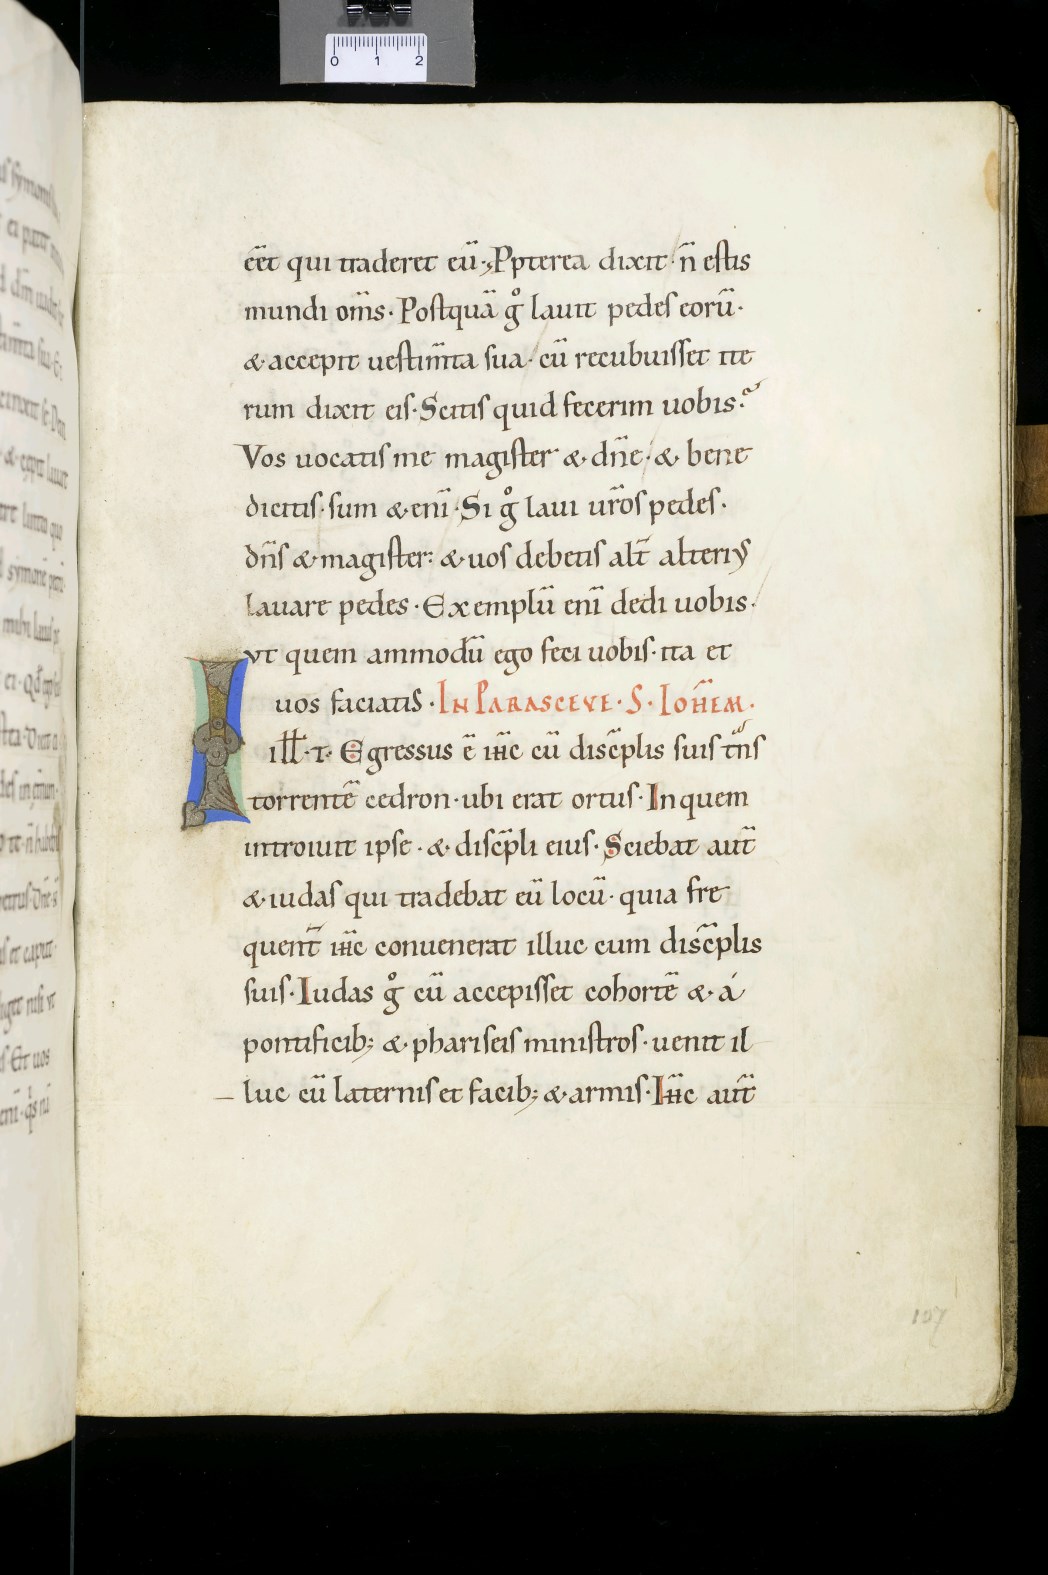 0 1 2
eēt qui traderet eū·, Ppterea dixit· n̄ estis
mundi om̄s· Postquā g̊ lauit pedes eorū·
& accepit uestim̄ta sua· cū recubuisset ite
rum dixit eis· Scitis quid fecerim uobis?
Vos uocatis me magister & dn̄e· & bene
dicitis· sum & enī· Si g̊ laui ur̄os pedes·
dn̄s & magister: & uos debetis alt̄ alteriꝰ
lauare pedes· Exemplū enī dedi uobis·
vt quem ammodū ego feci uobis· ita et
uos faciatis· IN PARASCEVE· S· IOH̄EM·
I ill̄· t· Egressus ē ih̄c cū discp̄lis suis tn̄s
torrentē cedron· ubi erat ortus· In quem
introiuit ipse· & discp̄li eius· Sciebat aut̄
& iudas qui tradebat eū locū· quia fre
quent̄ ih̄c conuenerat illuc cum discp̄lis
suis· Iudas g̊ cū accepisset cohortē & á
pontificib; & phariseis ministros· uenit il
luc cū laternis et facib; & armis· Ih̄c aut̄
107